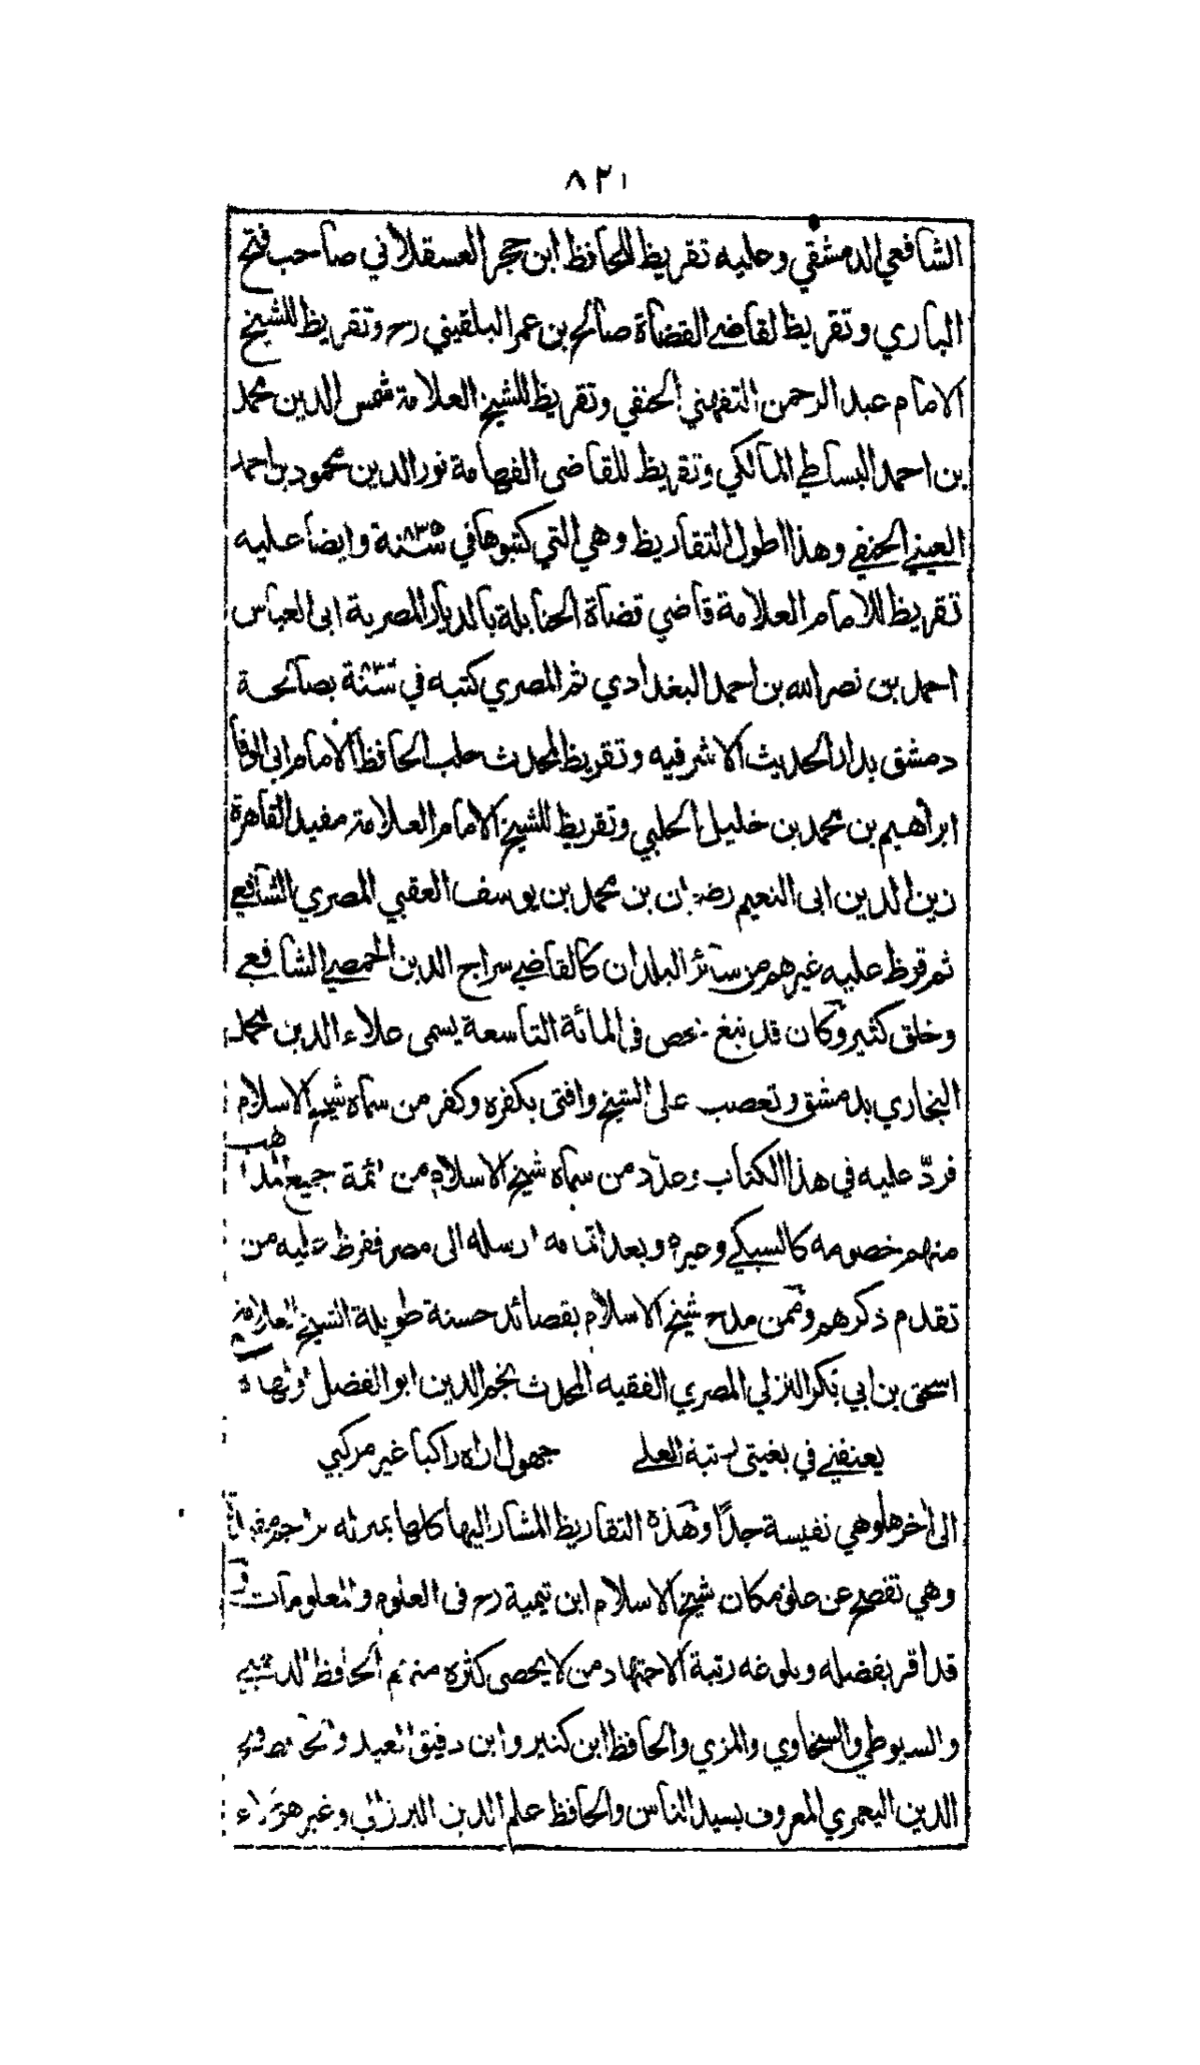 ٨٢١
الشافعي الدمشقي وعليه تقريظ للحافظ ابن حجر العسقلاني صاحب فتح
الباري وتقريظ لقاضي القضاة صالح بن عمر البلقيني رح وتقريظ للشيخ
الامام عبد الرحمن التفهني الحنفي وتقريظ للشيخ العلامة شمس الدين محمد
بن احمد البساطي المالكي وتقريظ للقاضي الفهامة نور الدين محمود بن احمد
العيني الحنفي وهذا اطول التقاريظ وهي التي كتبوها في سنة ٨٣٥ وايضا عليه
تقريظ للامام العلامة قاضي قضاة الحنابلة بالديار المصرية ابي العباس
احمد بن نصر الله بن احمد البغدادي ثم المصري كتبه في سنة بصالحية
دمشق بدار الحديث الاشرفيه وتقريظ لمحدث حلب الحافظ الامام ابي الوفا
ابراهيم بن محمد بن خليل الحلبي وتقريظ للشيخ الامام العلامة مفيد القاهرة
زين الدين ابي النعيم رضوان بن محمد بن يوسف العقبي المصري الشافعي
ثم قرظ عليه غيرهم من سائر البلدان كالقاضي سراج الدين الحمصي الشافعي
وخلق كثير وكان قد نبغ شخص في المائة التاسعة يسمى علاء الدين محمد
البخاري بدمشق وتعصب على الشيخ وافتى بكفره وكفر من سماه شيخ الاسلام
فردّ عليه في هذا الكتاب وعدّد من سماه شيخ الاسلام من ائمة جميع المذاهب
منهم خصومه كالسبكي وغيره وبعد اتمامه ارسله الى مصر فقرظ عليه من
تقدم ذكرهم وممن مدح شيخ الاسلام بقصائد حسنة طويلة الشيخ العلامة
اسحق بن ابي بكر التركي المصري الفقيه المحدث نجم الدين ابو الفضل اولها
يعنفني في بغيتي رتبة العلي جهول اراه راكبا غير مركبي
الى اخرها وهي نفيسة جدًا وهذه التقاريظ المشار اليها كلها بمنزلة تراجم
وهي تفصح عن علو مكان شيخ الاسلام ابن تيمية رح في العلوم والمعلومات
قد اقر بفضله وبلوغه رتبة الاجتهاد من لا يحصى كثره منهم الحافظ الذهبي
والسيوطي والسخاوي والمزي والحافظ ابن كثير وابن دقيق العيد والحافظ فتح
الدين اليعمري المعروف بسيد الناس والحافظ علم الدين البرزالي وغير هؤلاء